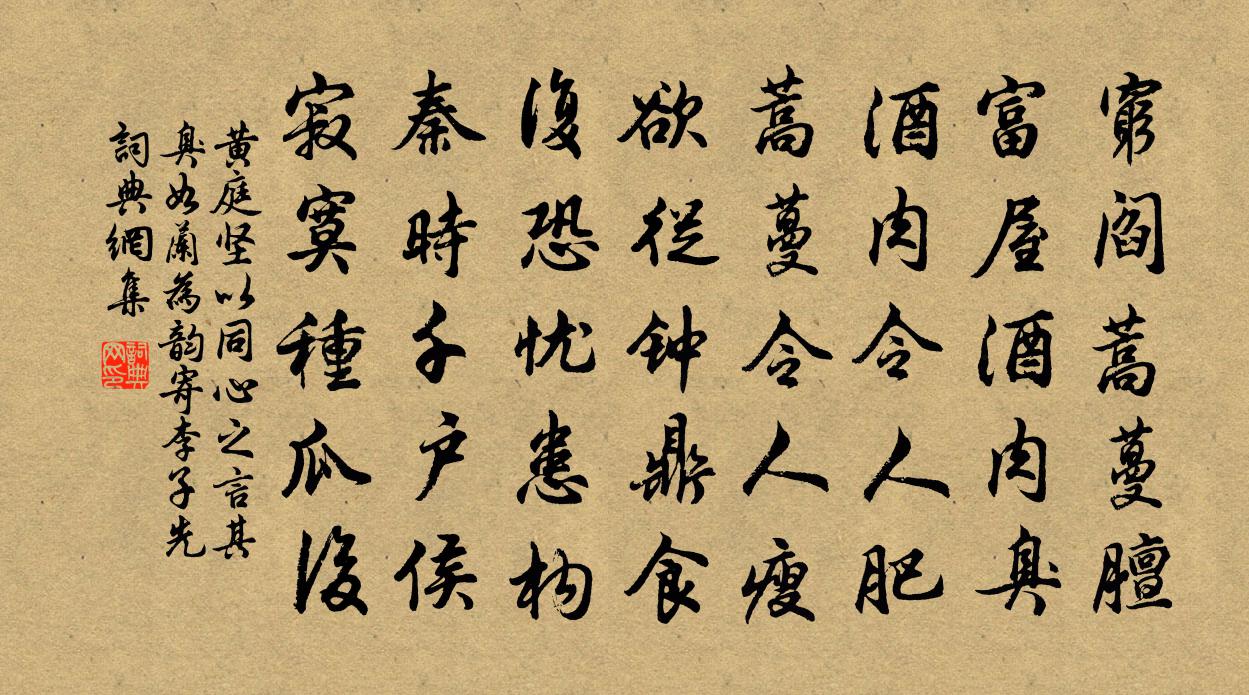 窮閻蒿蔓膻
富屋酒肉臭
酒肉令人肥
蒿蔓令人瘦
欲從钟鼎食
復恐忧患構
秦時千户侯
寂寞種瓜後
黄庭坚以同心之言其
臭如蘭為韵寄李子先
詞典網集
詞典网印